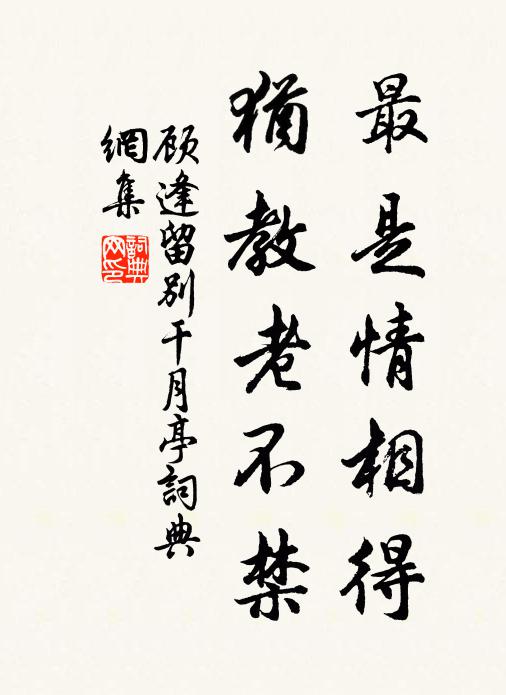 最是情相得
猶教老不禁
顾逢留别干月亭詞典
網集
詞典网印